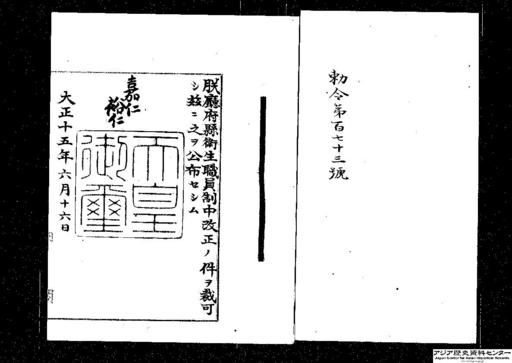 勅令第百七十三號
朕廳府縣衛生職員制中改正ノ件ヲ裁可
シ茲ニ之ヲ公布セシム
嘉仁
裕仁
天皇
御璽
大正十五年六月十六日
アジア歴史資料センター
Japan Center for Asian Historical Records